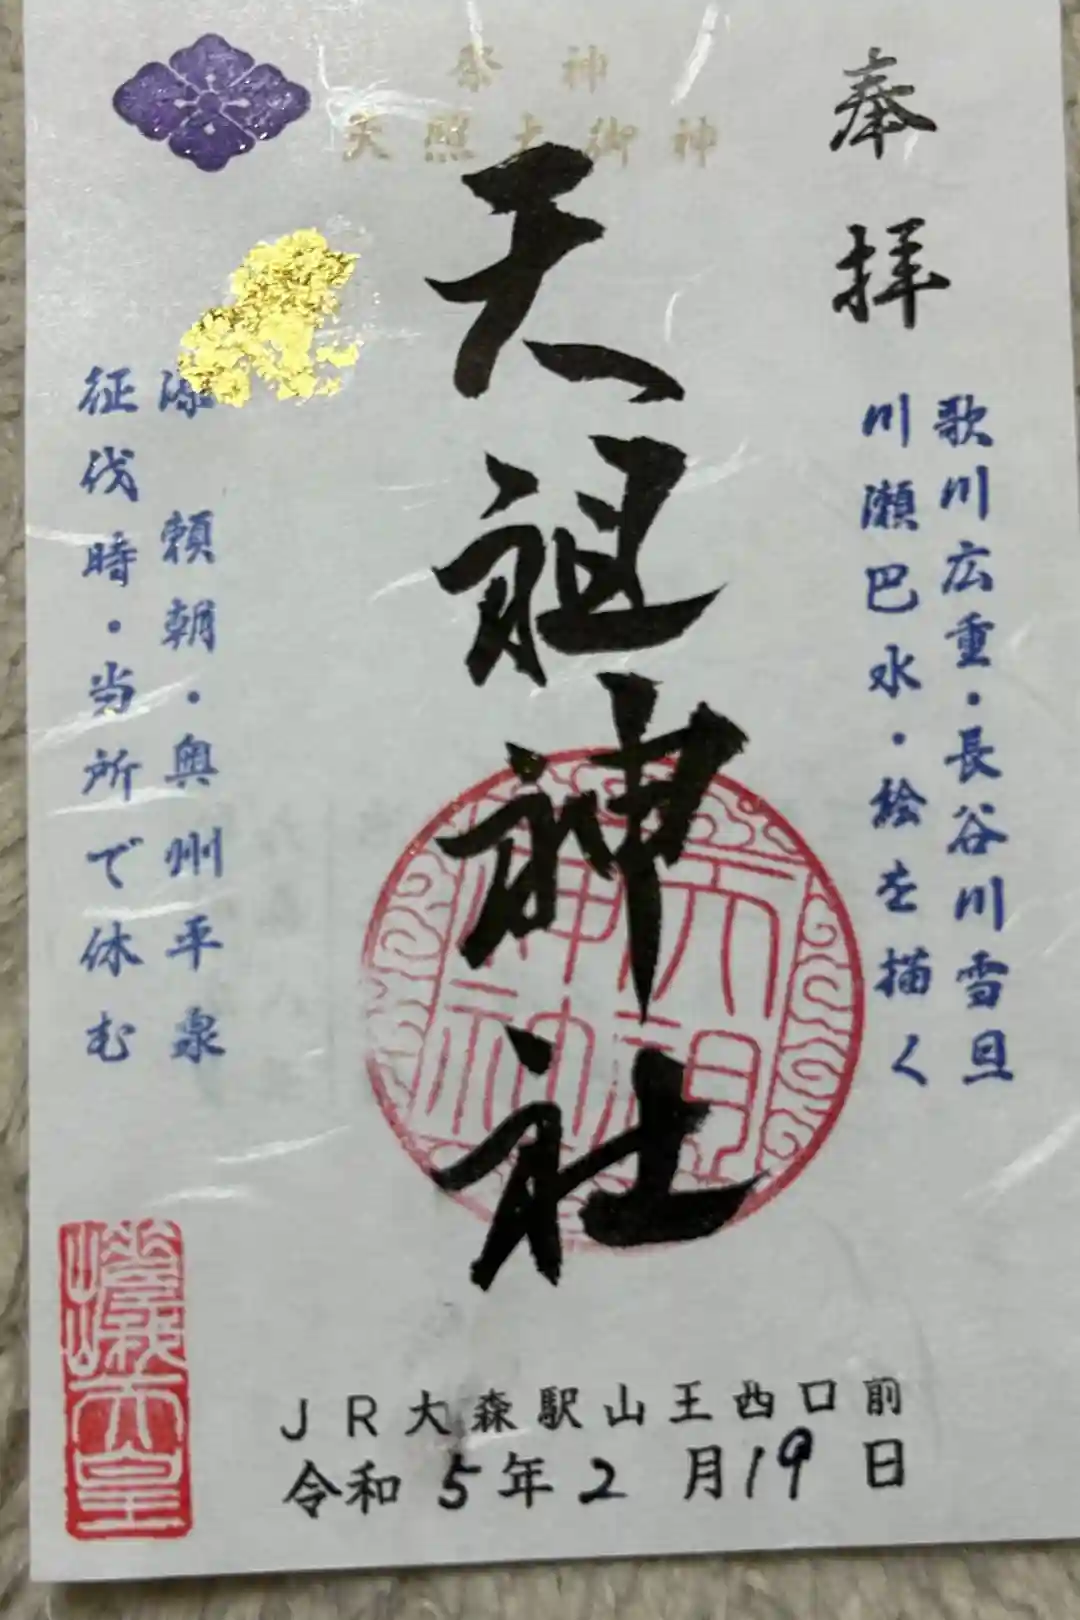 祭神
天照大御神
奉拝
歌川広重・長谷川雪旦
川瀬巴水・絵を描く
天祖神社
天祖
神社
源頼朝・奥州平泉
征伐時・当所で休む
嵯峨天皇
JR大森駅山王西口前
令和5年2月19日